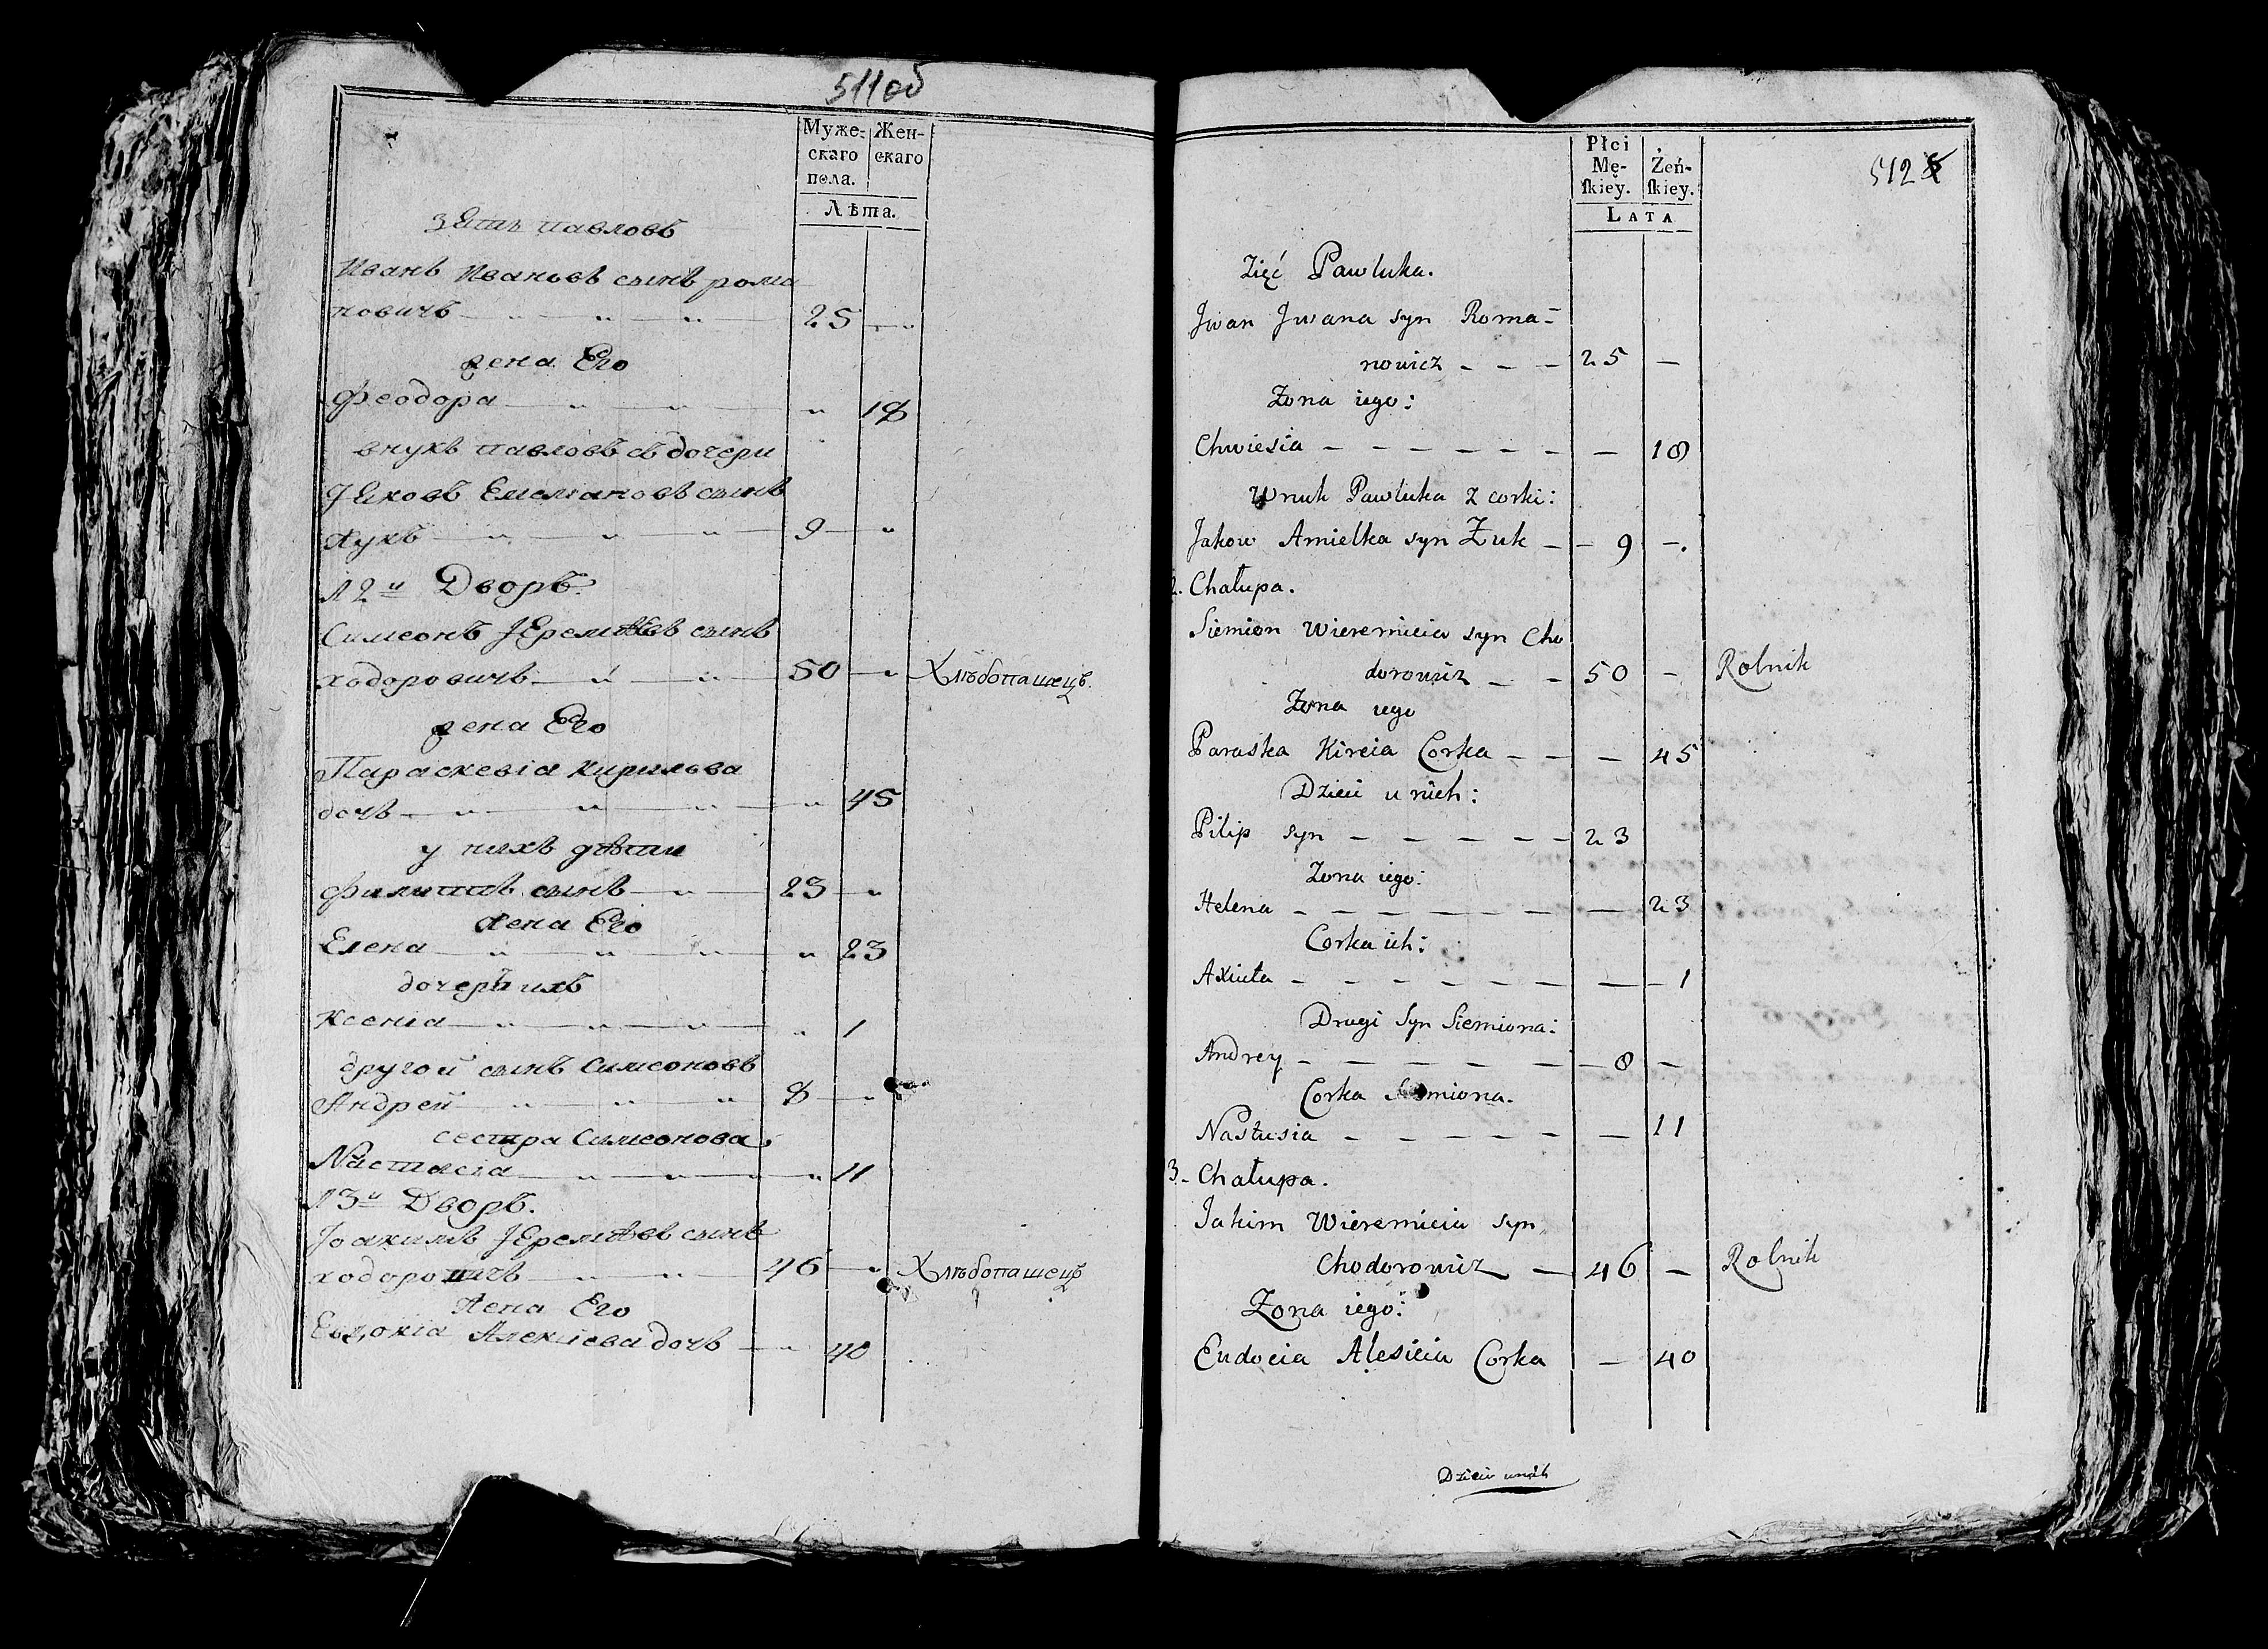 511об
Муже- Жен-
скаго скаго
пола.
Лѣта.
зять павловъ
Иванъ Ивановъ сынъ рома
новичъ 25
жена Его
Феодора 18
внукъ павловъ съ дочери
Яковъ Емельановъ сынъ
Жукъ 9
2й Дворъ.
Симеонъ Еремѣевъ сынъ
ходоровичъ 50 Хлѣбопашецъ.
жена Его
Параскевіа кирилова
дочь 45
у нихъ дѣти
Филиппъ сынъ 23
жена Его
Елена 23
дочерь ихъ
Ксеніа 1
другой сынъ Симеоновъ
Андрей 8
сестра Симеонова
Настасіа 11
3й Дворъ.
Іоакимъ Еремѣевъ сынъ
ходоровичъ 46 Хлѣбопашецъ
жена Его
Евдокіа Алексіева дочь 40
512
Płci
Mę- Żeń-
ſkiey. ſkiey.
LATA
Zięć Pawluka.
Jwan Jwana syn Roma-
nowicz - - - 25 -
Zona iego:
Chwiesia - - - - - - - 18
Wnuk Pawluka z corki:
Jakow Amielka syn Żuk - - 9 -.
2. Chałupa.
Siemion Wieremieia syn Cho
dorowicz - - 50 - Rolnik
Zona iego
Paraska Kireia Corka - - - 45
Dzieci u nich:
Pilip syn - - - - - 23
Zona iego:
Helena - - - - - - - - 23
Corka ich:
Axiuta - - - - - - - - - 1
Drugi Syn Siemiona:
Andrey - - - - - - - 8 -
Corka Siemiona.
Nastusia - - - - - - 11
3. Chałupa.
Jakim Wieremieia syn
Chodorowicz - 46 - Rolnik
Zona iego:
Eudocia Alesieia Corka - 40
Dzieci unich